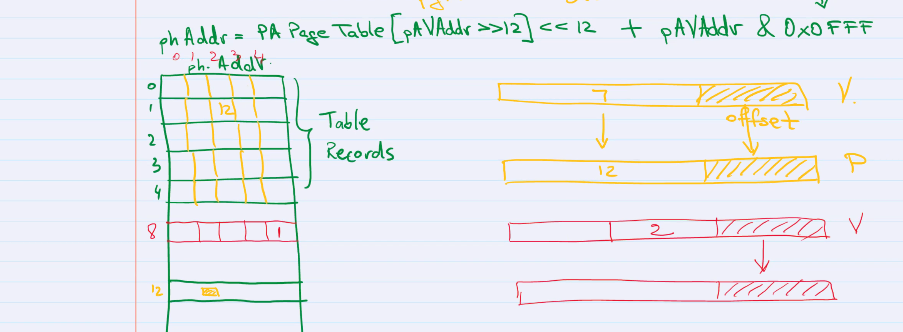 phAddr = PA Page Table [pAVAddr >>12] << 12 + pAVAddr & 0x0FFF
0 1 2 3 4
ph. Addr.
0
1 12
2
3
4
Table
Records
8 1
12
7 V.
offset
12 P
2 V